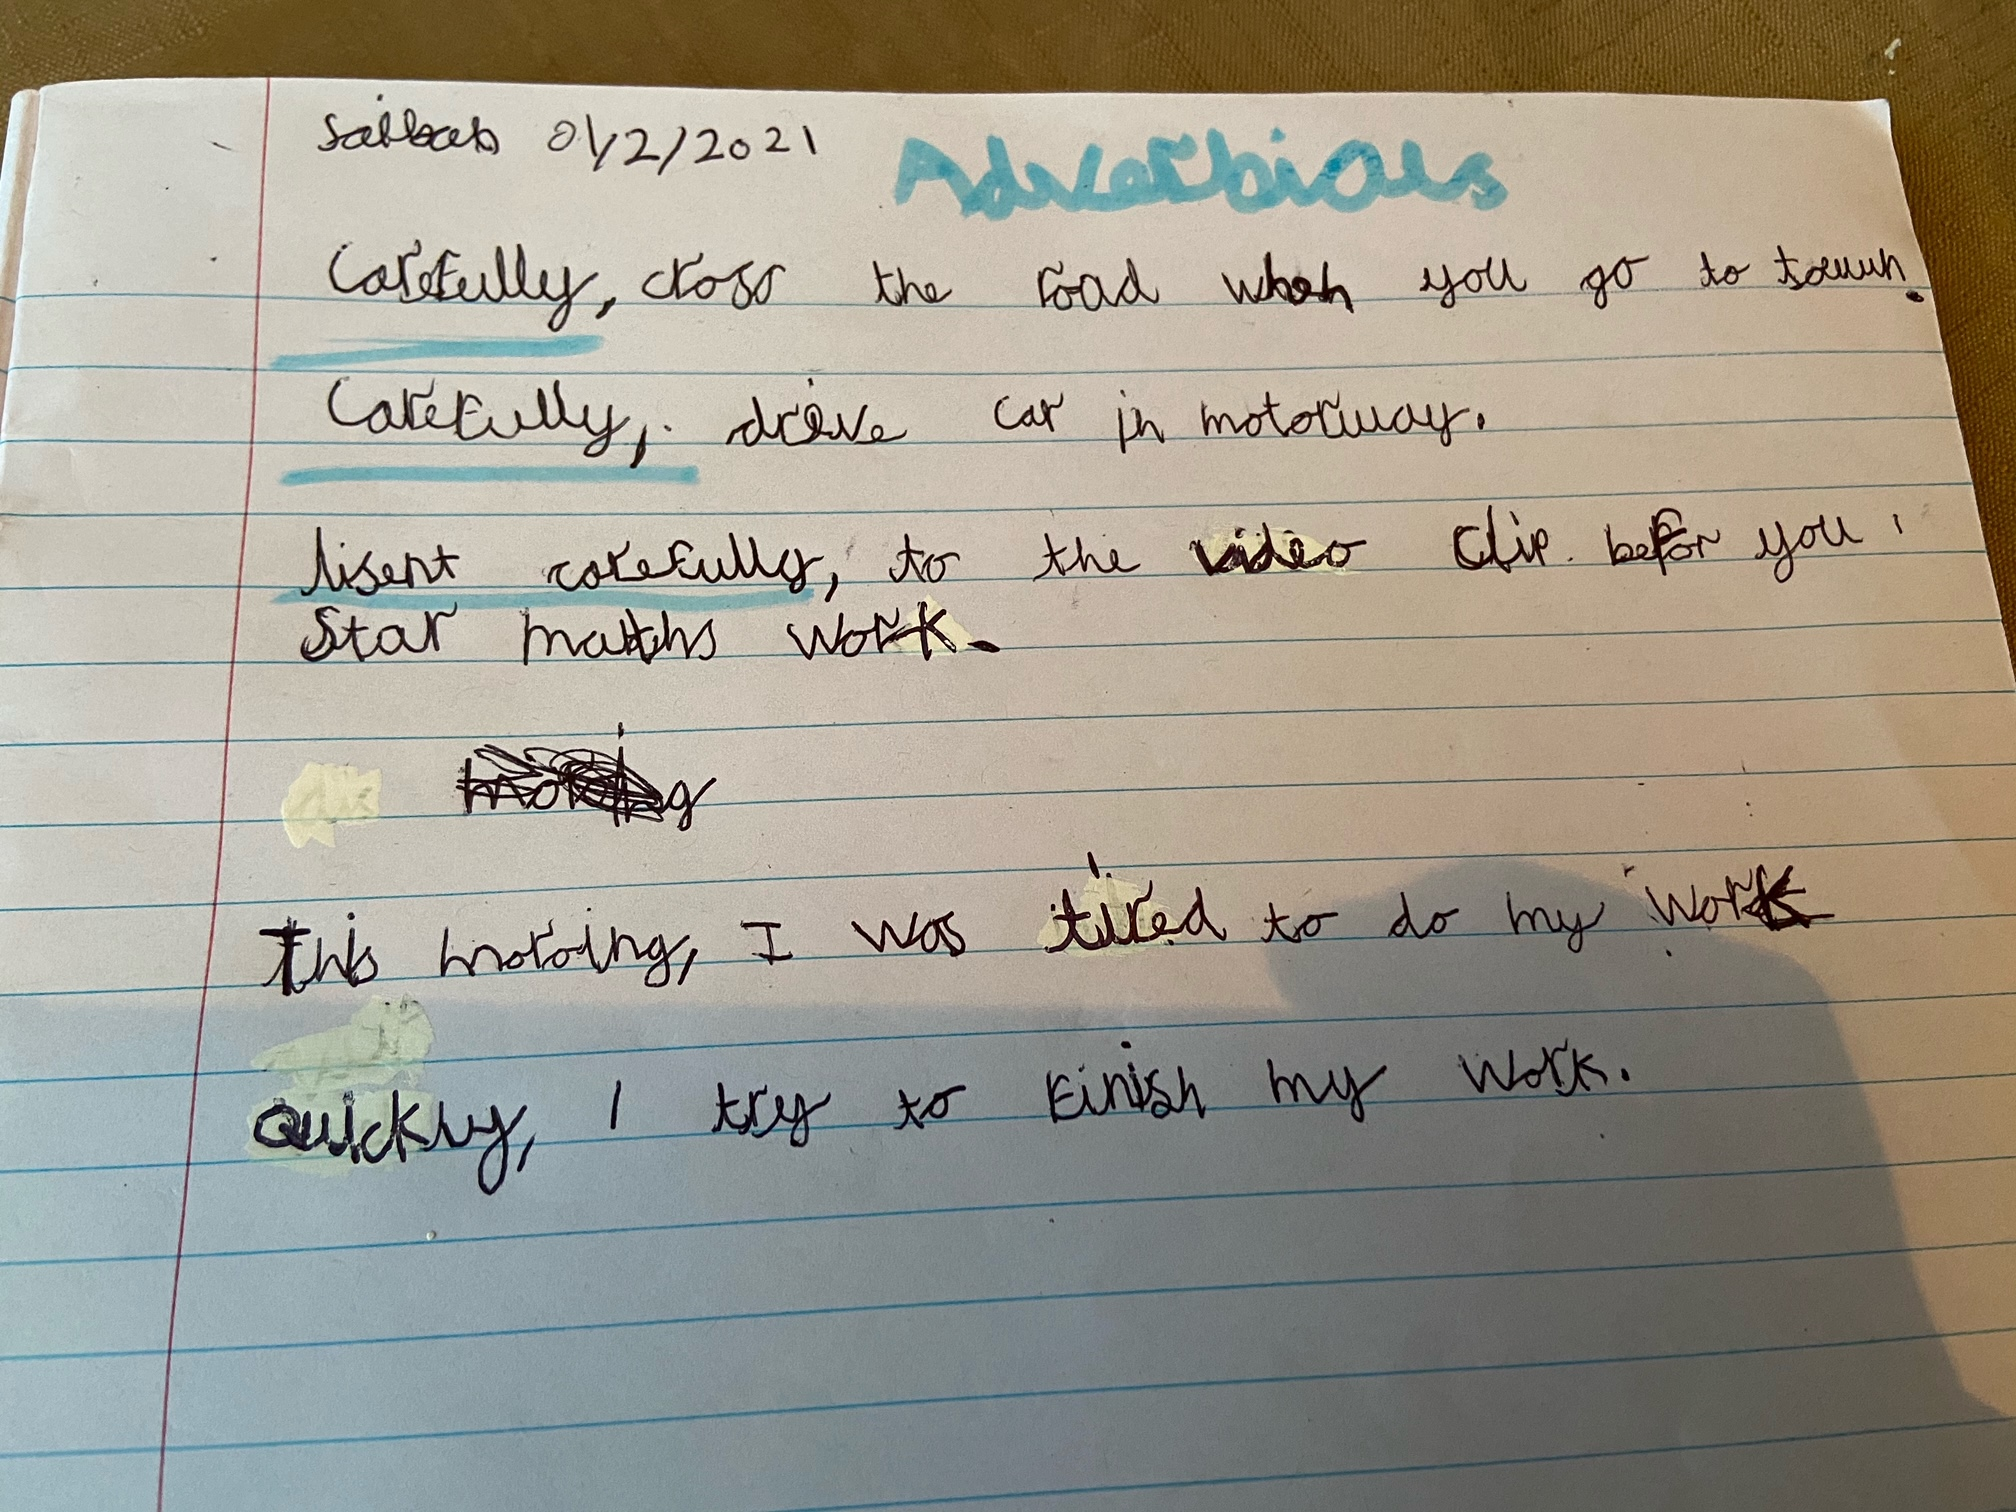 01/2/2021 Adverbials
Carefully, cross the road when you go to town.
Carefully, drive car in motorway.
lisent carefully, to the video clip befor you
Star maths work.
This morning, I was tired to do my work
Quickly, I try to finish my work.